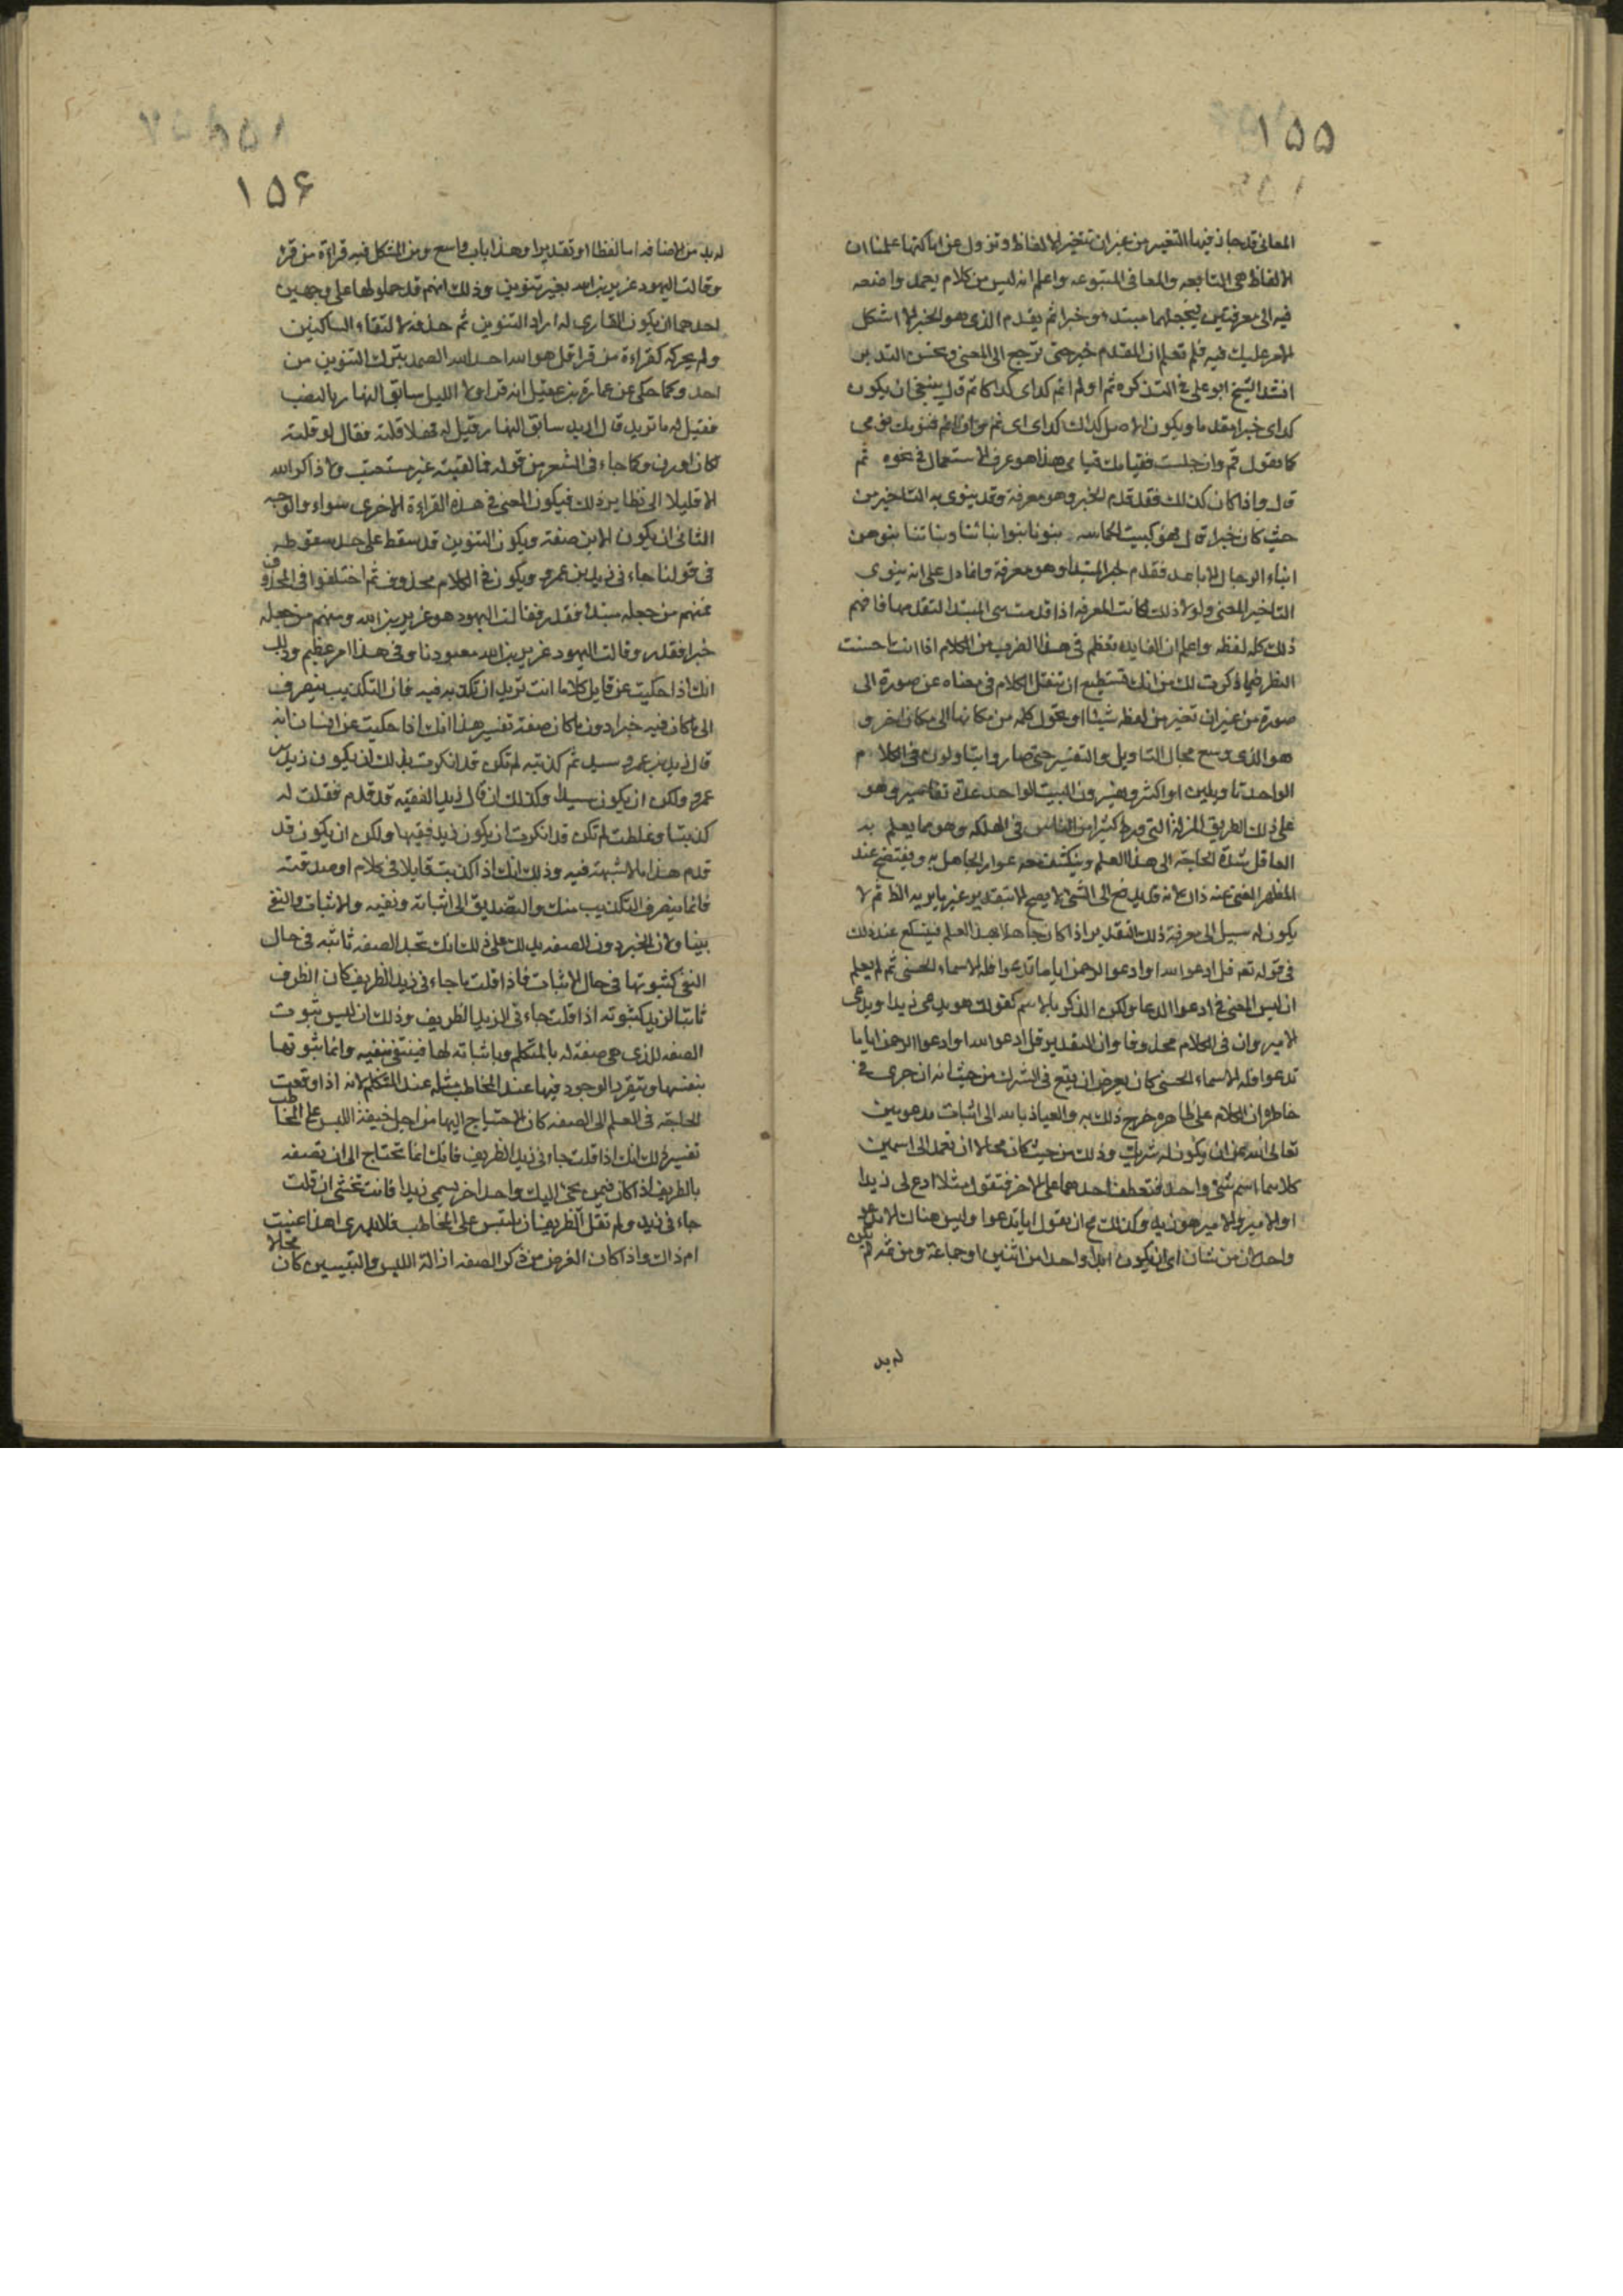 ١٥٥
المعانى قد جاز فيها التغيير من غير ان تتغير الالفاظ وتزول عن اماكنها علمنا ان
الالفاظ هى التابعه والمعانى المتبوعه واعلم انه ليس من كلام يعمد واضعه
فيه الى معرفتين فيجعلهما مبتدء وخبرا ثم يقدم الذى هو الخبر الا اشكل
الامر عليك فيه فلم تعلم ان المقدم خبر حتى ترجع الى المعنى وتحسن التدبر
انشد الشيخ ابو على فى التذكره ثم اولم انم كداى كداكا ثم قال ينبغى ان يكون
كداى خبرا مقدما ويكون الاصل كداك كداى اى نم وان لم انم فنومك نومى
كما تقول قم وان جلست فقيامك قيامى هذا هو عرف الاستعمال فى نحوه ثم
قال واذا كان كذلك فقد قدم الخبر وهو معرفة وقد ينوى به التاخير من
حيث كان خبرا قال فهو كبيت الحماسه بنونا بنوا بنائنا وبناتنا بنوهن
ابناء الرجال الاباعد فقدم خبر المبتدا وهو معرفة وانما دل على انه ينوى
التاخير المعنى ولولا ذلك لكانت المعرفه اذا قدمت هى المبتدا لتقدمها فافهم
ذلك كله لفظه واعلم ان الفايده تعظم فى هذا الضرب من الكلام اذا انت احسنت
النظر فيما ذكرت لك من انك تستطيع ان تنقل الكلام فى معناه عن صورة الى
صورة من غير ان تغير من لفظه شيئا او تحول كلمه من مكانها الى مكان اخر و
هو الذى وسع مجال التاويل والتفسير حتى صاروا يتاولون فى الكلام
الواحد تاويلين او اكثر ويفسرون البيت الواحد عدة تفاسير وهو
على ذلك الطريق المزلة التى ورط كثيرا من الناس فى الهلكه وهو مما يعلم به
العاقل شدة الحاجة الى هذا العلم وينكشف معه عوار الجاهل به ويفتضح عنده
المظهر الغنى عنه ذاك لانه قد يدفع الى الشئ لا يصح الا بتقدير غير ما يريه الظ ثم لا
يكون له سبيل الى معرفة ذلك التقدير اذا كان جاهلا بهذا العلم فيتسكع عند ذلك
فى قوله تع قل ادعوا الله او ادعوا الرحمن ايا ما تدعوا فله الاسماء الحسنى ثم لم يعلم
ان ليس المعنى فى ادعوا الدعا ولكن الذكر بالاسم كقولك هو يدعى زيدا ويدعى
الامير وان فى الكلام محذوفا وان التقدير قل ادعوا الله او ادعوا الرحمن ايا ما
تدعوا فله الاسماء الحسنى كان بعرض ان يقع فى الشرك من حيث انه ان جرى فى
خاطره ان الكلام على ظاهره خرج ذلك به والعياذ بالله الى اثبات مدعوين
تعالى الله عن ان يكون له شريك وذلك من حيث كان محالا ان تعمد الى اسمين
كلاهما اسم شئ واحد فتعطف احدهما على الاخر فتقول مثلا ادع لى زيدا
او الامير والامير هو زيد وكذلك مح ان تقول ايا تدعوا وليس هناك الا مدعو
واحد لان من شان اى ان يكون ابدا واحدا من اثنين او جماعة ومن ثمه لم يكن
له بد
١٥٦
له بد من الاضافه اما لفظا او تقديرا وهذا باب واسع ومن المشكل فيه قراءة من قرا
وقالت اليهود عزير بن الله بغير تنوين وذلك انهم قد حملوها على وجهين
احدهما ان يكون القارى له اراد التنوين ثم حذفه لالتقاء الساكنين
ولم يحركه كقراءة من قرا قل هو الله احد الله الصمد بترك التنوين من
احد وكما حكى عن عمارة بن عقيل انه قرا ولا الليل سابق النهار بالنصب
فقيل له ما تريد قال اريد سابق النهار فقيل له فهلا قلته فقال لو قلته
لكان اوزن وكما جاء فى الشعر من قوله فالفيته غير مستعتب ولا ذاكر الله
الا قليلا الى نظاير ذلك فيكون المعنى فى هذه القراءة الاخرى سواء والوجه
الثانى ان يكون الابن صفة ويكون التنوين قد سقط على حد سقوطه
فى قولنا جاءنى زيد بن عمرو ويكون فى الكلام محذوف ثم اختلفوا فى المحذوف
فمنهم من جعله مبتدا فقدر فقالت اليهود هو عزير بن الله ومنهم من جعله
خبرا فقدر وقالت اليهود عزير بن الله معبودنا وفى هذا امر عظيم وذلك
انك اذا حكيت عن قايل كلاما انت تريد ان تكذبه فيه فان التكذيب ينصرف
الى ما كان فيه خبرا دون ما كان صفة تفسير هذا انك اذا حكيت عن انسان انه
قال زيد بن عمرو سيد ثم كذبته لم تكن قد انكرت بذلك ان يكون زيد بن
عمرو ولكن ان يكون سيدا وكذلك ان قال زيد الفقيه قد قدم فقلت له
كذبت او غلطت لم تكن قد انكرت ان يكون زيد فقيها ولكن ان يكون قد
قدم هذا ما لا شبهة فيه وذلك انك اذا كذبت قايلا فى كلام او صدقته
فانما ينصرف التكذيب منك والتصديق الى اثباته ونفيه والاثبات والنفى
يتناولان الخبر دون الصفه يدلك على ذلك انك تجد الصفه ثابته فى حال
النفى كثبوتها فى حال الاثبات فاذا قلت ما جاءنى زيد الظريف كان الظرف
ثابتا لزيد كثبوته اذا قلت جاءنى زيد الظريف وذلك ان ليس ثبوت
الصفه للذى هى صفة له بالمتكلم وباثباته لها فينتفى بنفيه وانما ثبوتها
بنفسها ويتقرر الوجود فيها عند المخاطب مثله عند المتكلم لانه اذا وقعت
الحاجة فى العلم الى الصفه كان الاحتياج اليها من اجل خيفة اللبس على المخاطب
تفسير ذلك انك اذا قلت جاءنى زيد الظريف فانك انما تحتاج الى ان تصفه
بالظريف اذا كان فيمن يجئ اليك واحد اخر يسمى زيدا فانت تخشى ان قلت
جاءنى زيد ولم تقل الظريف ان يلتبس على المخاطب فلا يدرى اهذا عنيت
ام ذاك واذا كان الغرض من ذكر الصفه ازالة اللبس والتبيين كان محالا